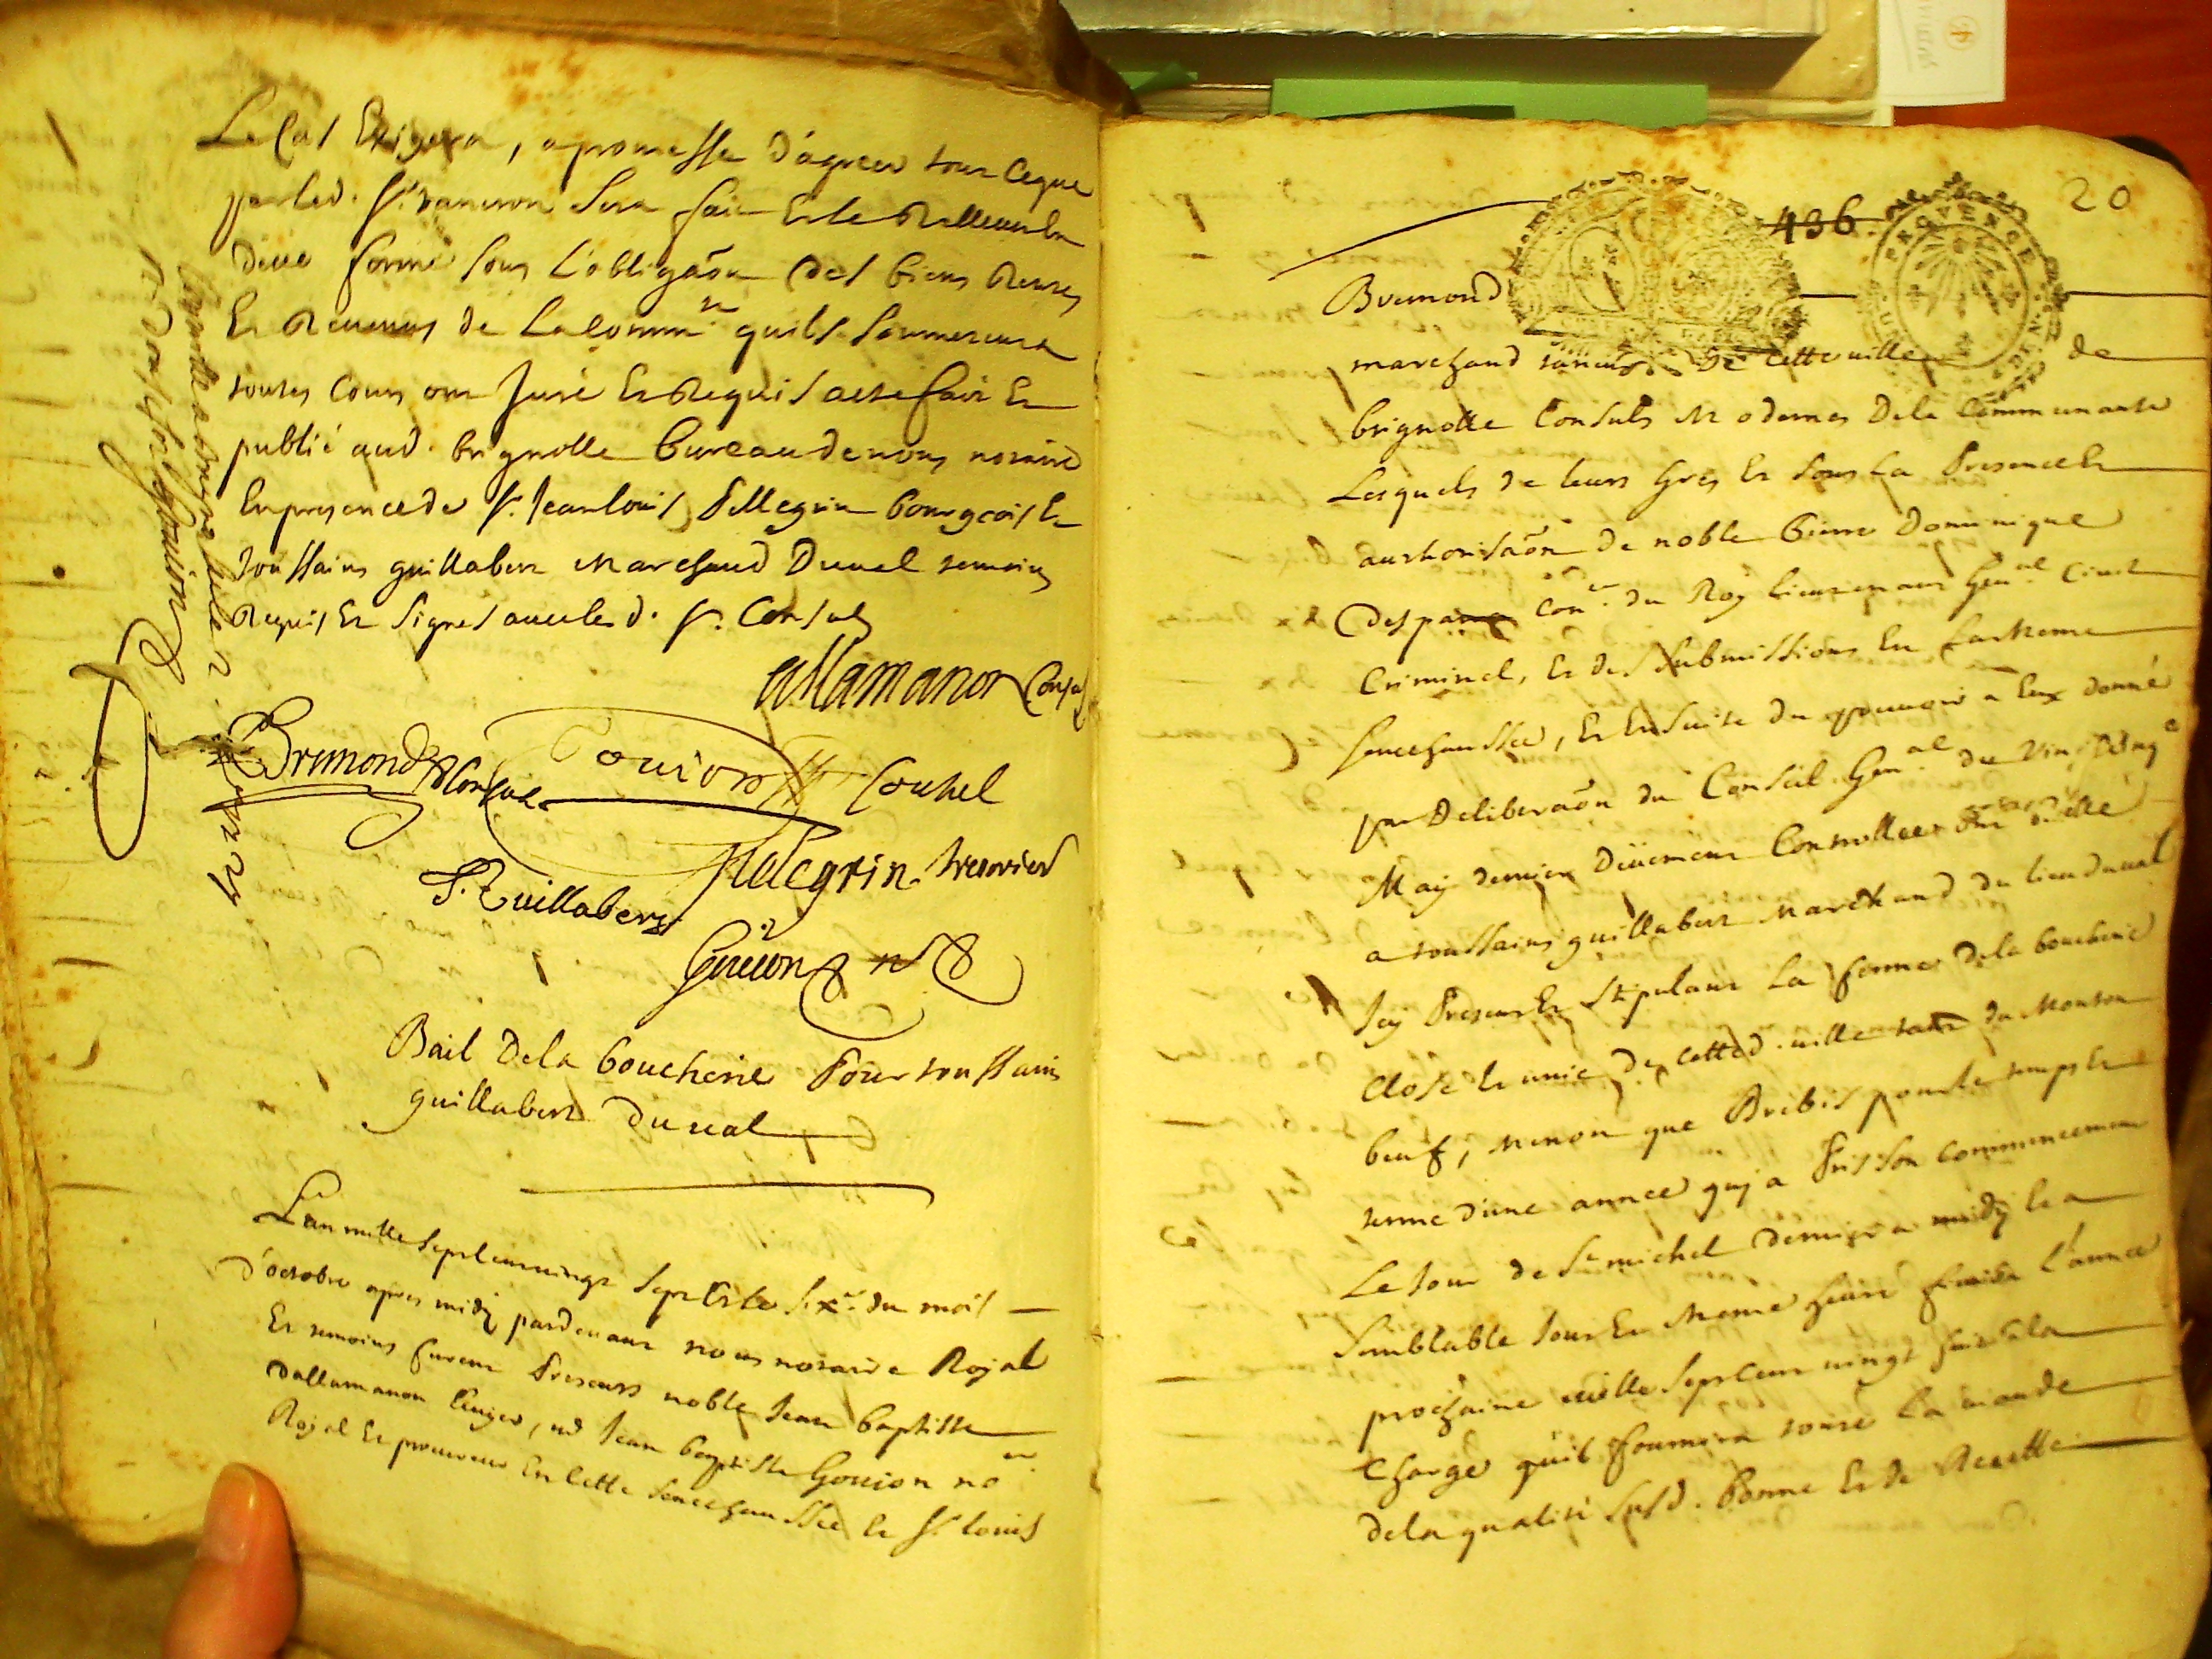 Le Cas Exigera, a promesse d'agreer tout ceque
par led. Sr. vancron sera fait Et le Relleuer En
deue forme sous L'obligaõn des biens Rentes
Et Reuenus de La Commté. quils soumettent a
toutes Cours ont Juré Et Requis acte fait Et
publié aud. brignolle bureau de nous notaire
En presence de Sr. Jean louis Pellegrin bourgeois Et
toussains guillabert Marchand Duual temoins
Requis Et signes auec led. Srs. Consuls
allamanon Consul
Bremond Consul
Gouion Consul
Pelegrin tresorier
T. Guillabert
Guion nre
Bail Dela boucherie Pour toussains
guillabert duual
L'an mille sept cent vingt sept Et le six.e du mois
d'octobre apres midy pardeuant nous notaire Royal
Et temoins furent Presents noble Jean baptiste
Dallamanon Ecuyer, md Jean baptiste Gouion nore
Royal Et procureur En Cette seneschaussée Et Sr. louis
436
20
PROVENCE
Bremond
marchand taneur de Cette ville de
brignolle Consuls Modernes Dela Communauté
Lesquels de leurs Gres Et sous la Presence Et
authorisaõn de noble Pierre Dominique
Desparra Coner. du Roy lieutenant Genal. Ciuil
Criminel, Et des submissions En Cacheme
seneschaussée, Et En suite du pouuoir a Eux donné
par Deliberaõn du Conseil Genal. du Vint Cinqe
May dernier Düement Controllee
a toussains guillabert Marchand du lieu duual
Icy Present Et Stipulant La ferme dela boucherie
Close Et vnie de Cette d. ville tant du Mouton
beuf, menon que Brebis pour le temps Et
terme d'une année quj a Pris son Commencement
Le Jour de St michel dernier a midy Et a
semblable Jour Et Meme heure finira l'année
prochaine mille sept cent vingt huit a la
Charge quil fournira toute la viande
dela qualité susd. bonne Et de Recette